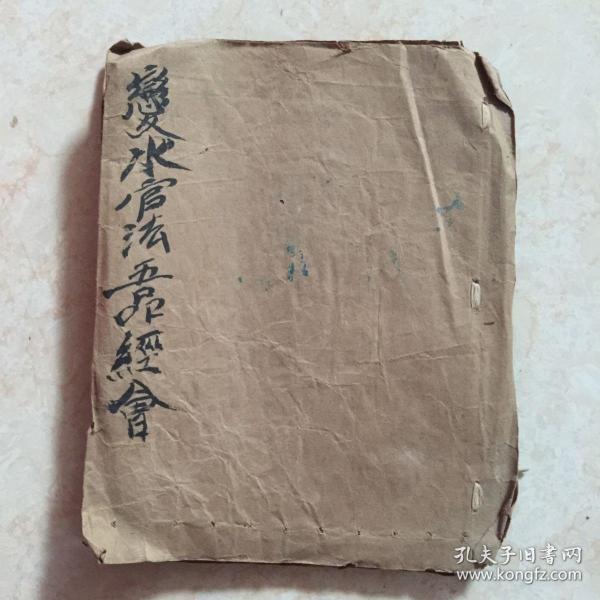 變水官法五品經會
孔夫子旧書网
www.kongfz.com